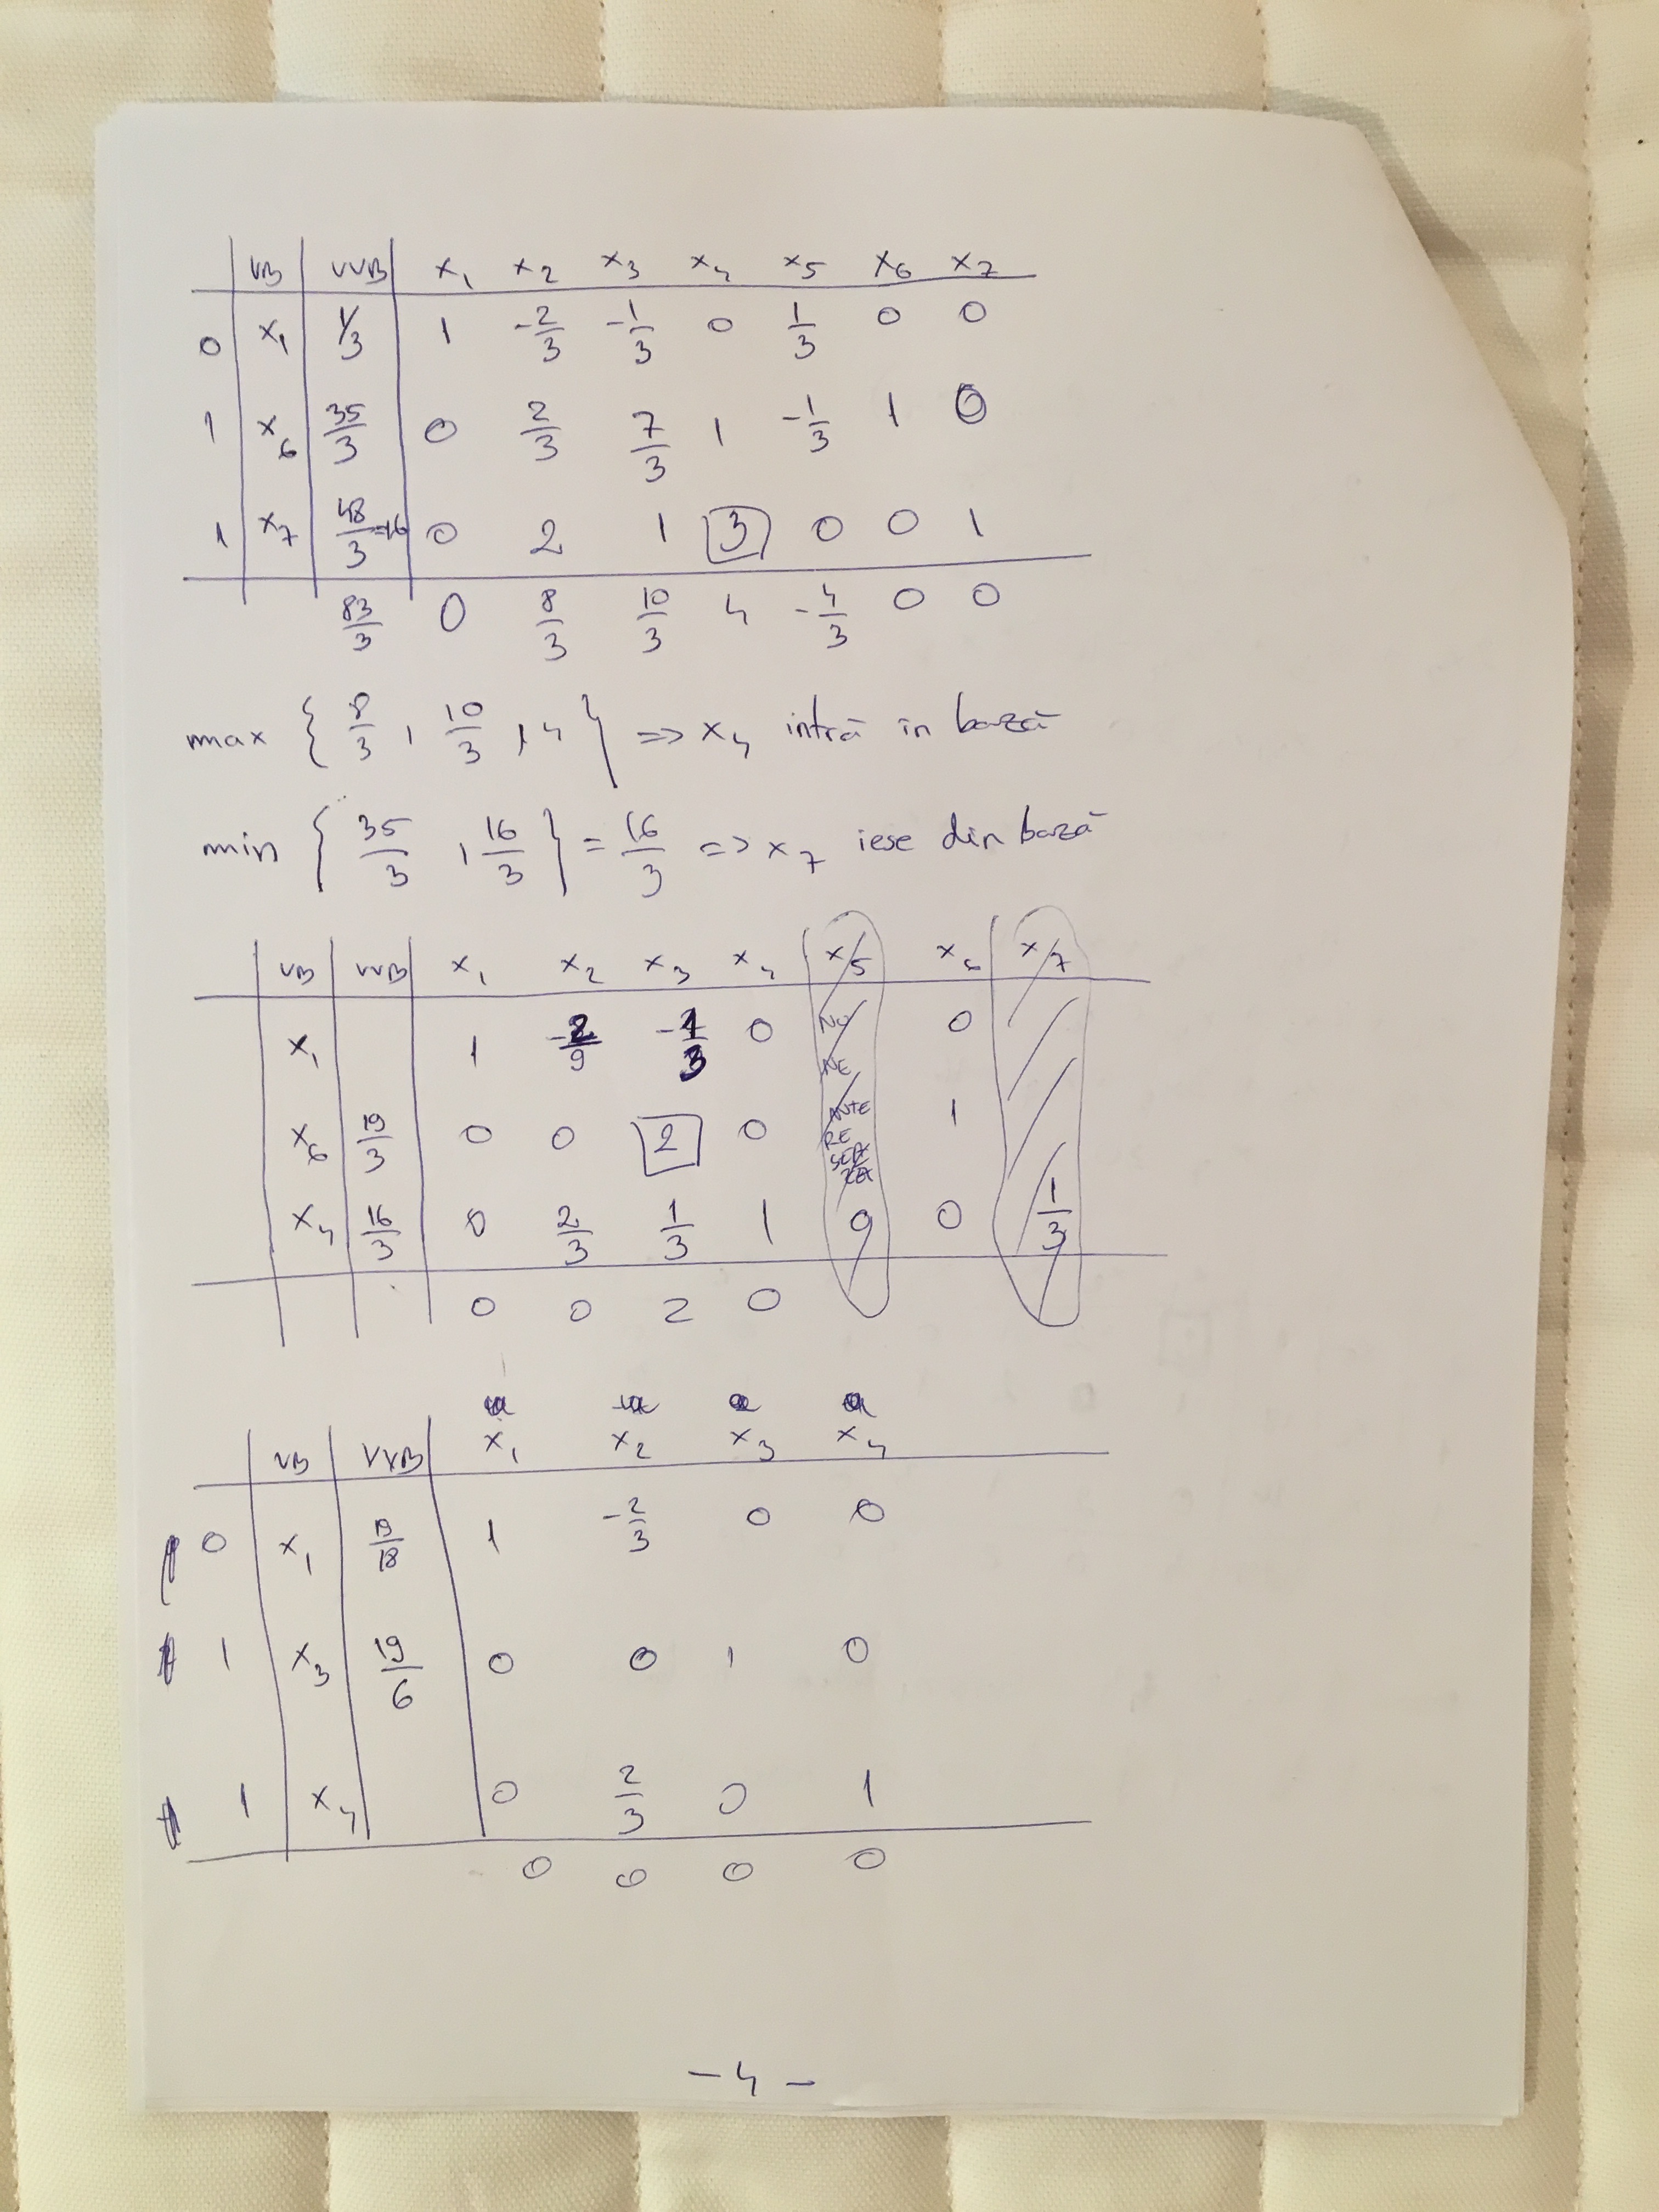 VB VVB x₁ x₂ x₃ x₄ x₅ x₆ x₇
0 x₁ 1/3 1 -2/3 -1/3 0 1/3 0 0
1 x₆ 35/3 0 2/3 7/3 1 -1/3 1 0
1 x₇ 48/3=16 0 2 1 3 0 0 1
83/3 0 8/3 10/3 4 -4/3 0 0
max { 8/3 , 10/3 , 4 } => x₄ intră în bază
min { 35/3 , 16/3 } = 16/3 => x₇ iese din bază
VB VVB x₁ x₂ x₃ x₄ x₅ x₆ x₇
x₁ 1 -2/9 -1/3 0 NU NE 0
x₆ 19/3 0 0 2 0 1
x₄ 16/3 0 2/3 1/3 1 0 0 1/3
0 0 2 0
VB VVB x₁ x₂ x₃ x₄
0 x₁ 19/18 1 -2/3 0 0
1 x₃ 19/6 0 0 1 0
1 x₄ 0 2/3 0 1
0 0 0 0
- 4 -